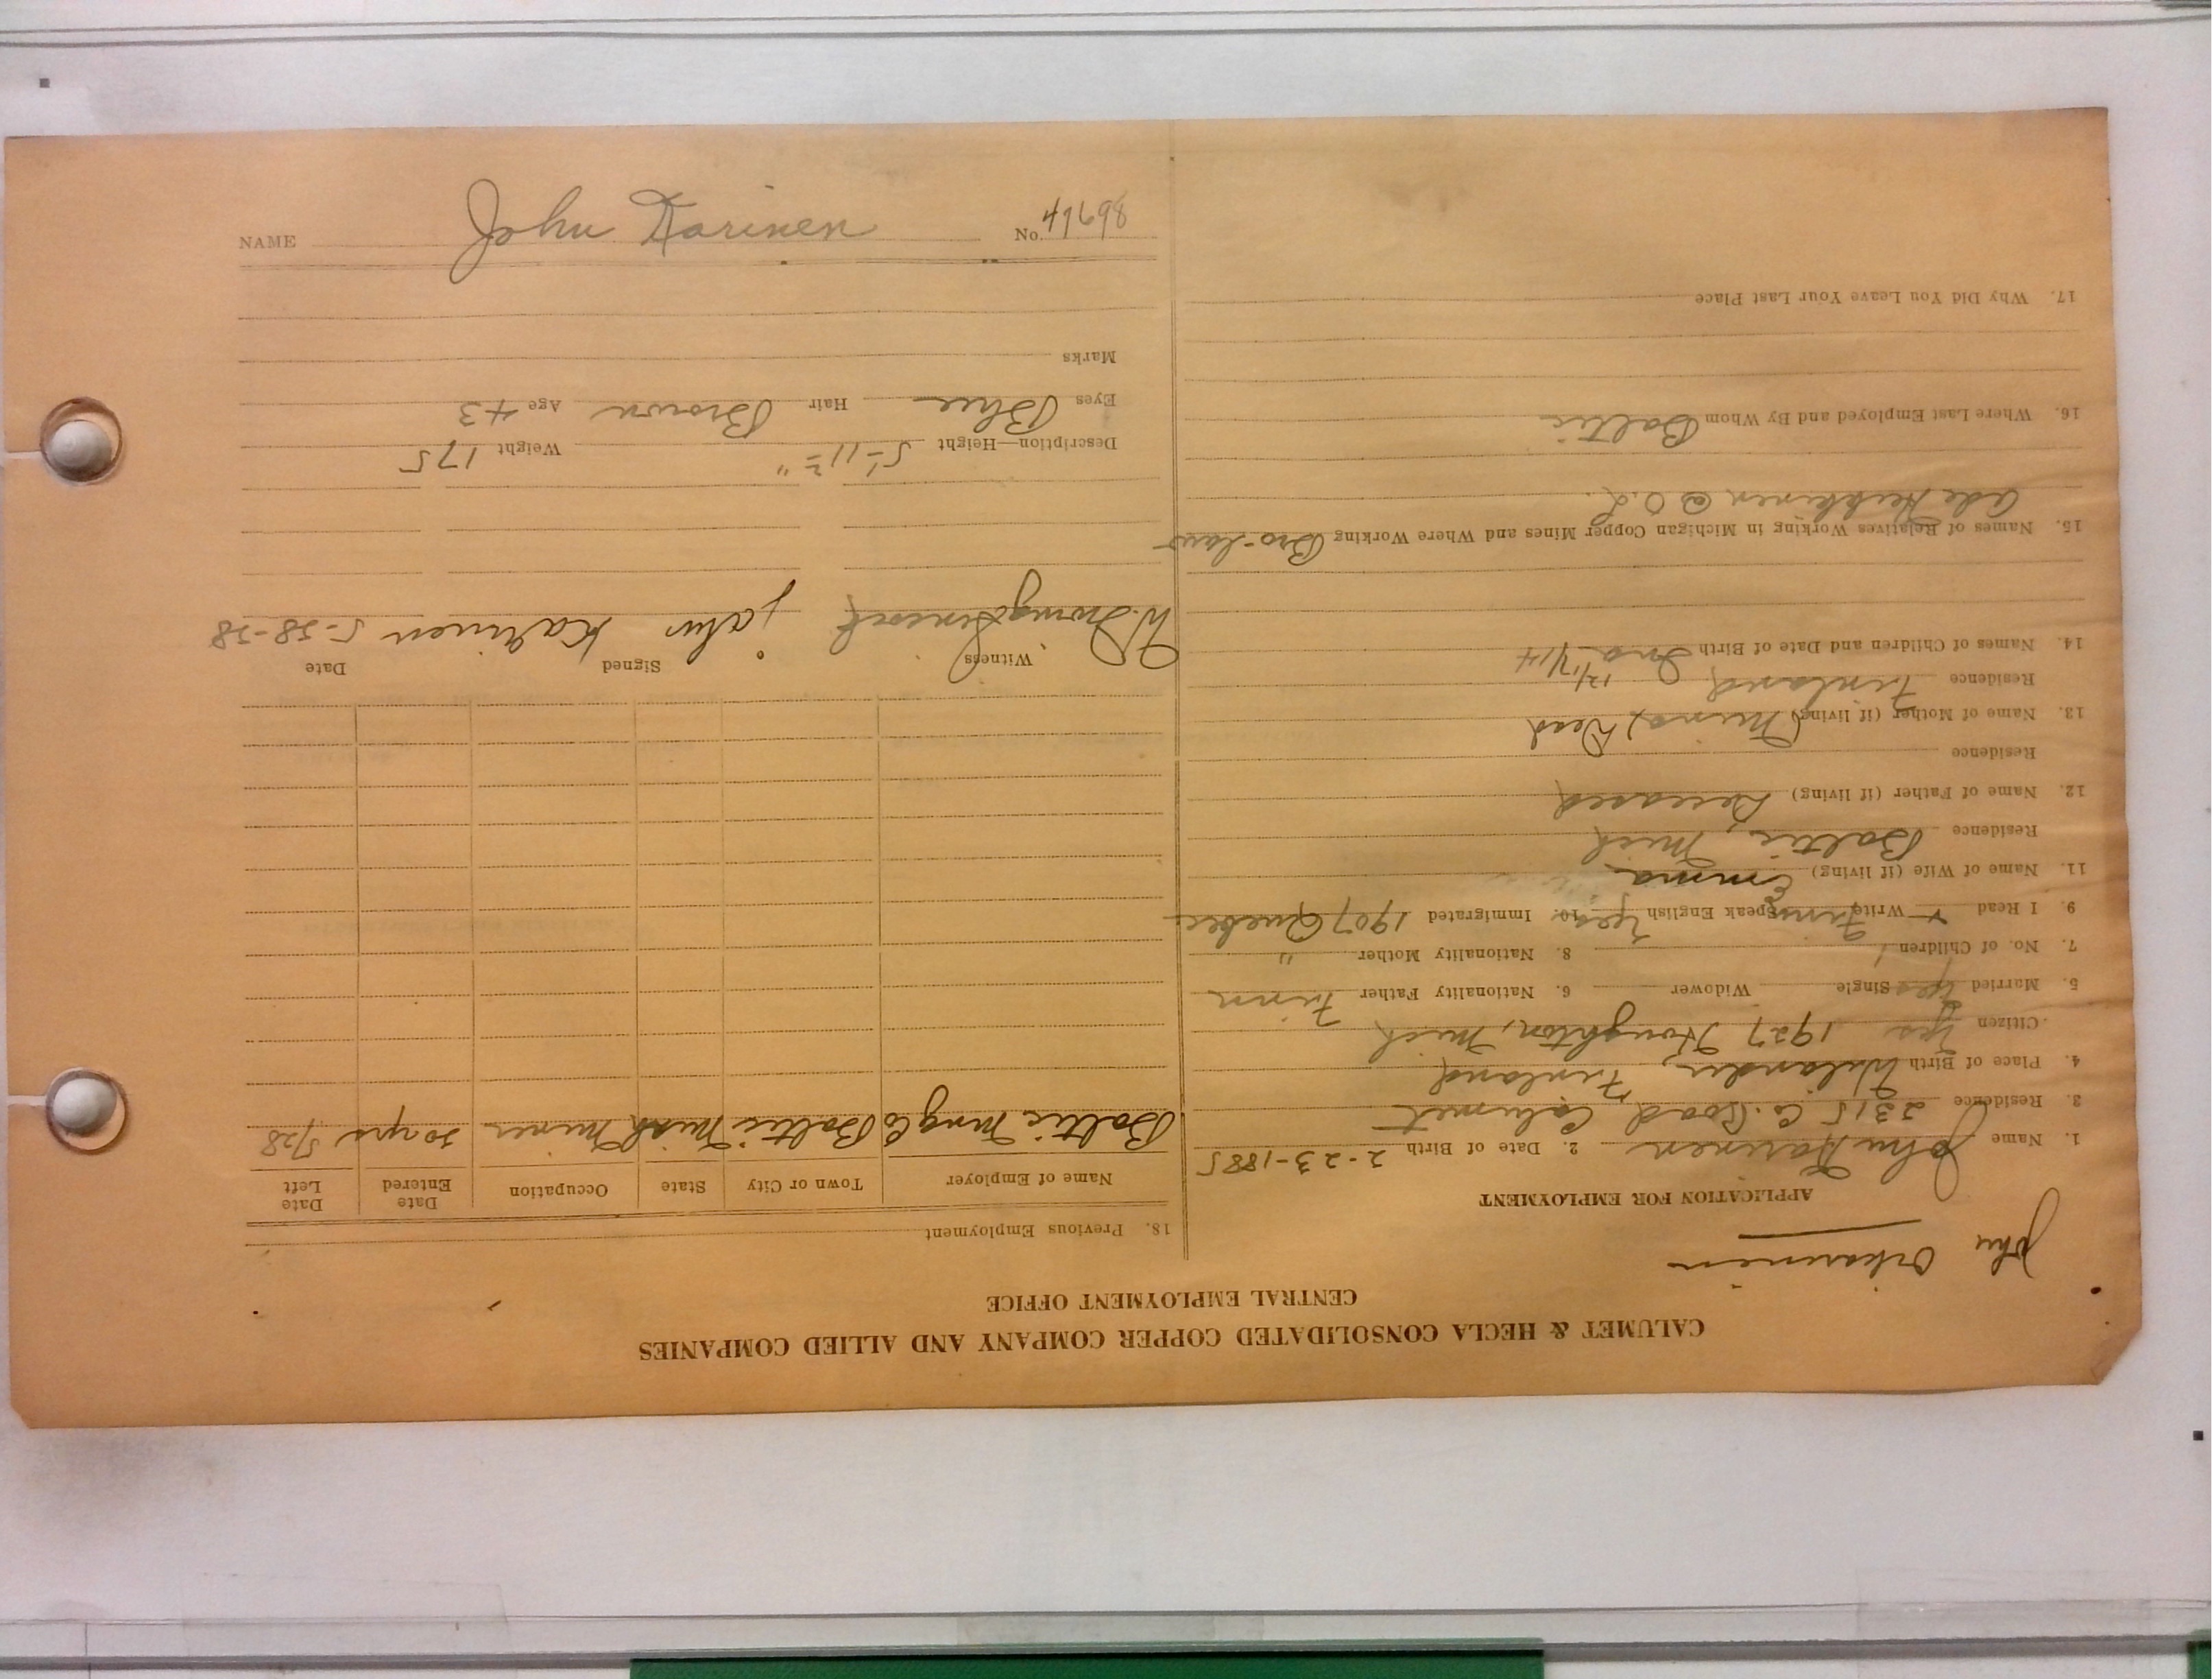 CALUMET & HECLA CONSOLIDATED COPPER COMPANY AND ALLIED COMPANIES
CENTRAL EMPLOYMENT OFFICE
John
APPLICATION FOR EMPLOYMENT
1. Name John Karinen 2. Date of Birth 2-23-1885
3. Residence 2315 B. Road, Calumet
4. Place of Birth Finland
Citizen Yes 1927 Houghton, Mich
5. Married Yes Single Widower 6. Nationality Father Finn
7. No. of Children 1 8. Nationality Mother "
9. I Read Write Finn Speak English Yes 10. Immigrated 1907 Quebec
11. Name of Wife (if living) Emma
Residence Baltic, Mich
12. Name of Father (if living) Deceased
Residence
13. Name of Mother (if living) (Mina) Dead
Residence Finland
14. Names of Children and Date of Birth Ina 12/17/14
15. Names of Relatives Working in Michigan Copper Mines and Where Working Bro-law
Ade Heikkinen @ O.L.
16. Where Last Employed and By Whom Baltic
17. Why Did You Leave Your Last Place
18. Previous Employment
Name of Employer Town or City State Occupation Date Entered Date Left
Baltic Mng Co Baltic Mich Miner 20 yrs 5/28
Witness Signed Date
W. john Karinen 5-28-28
Description—Height 5'-11½" Weight 175
Eyes Blue Hair Brown Age 43
Marks
NAME John Karinen No. 47698